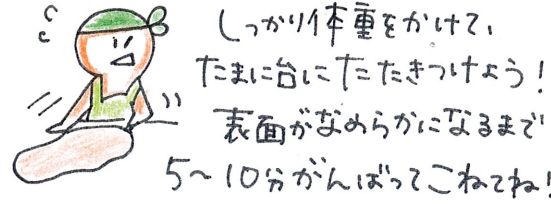 しっかり体重をかけて、
たまに台にたたきつけよう！
表面がなめらかになるまで
5〜10分がんばってこねてね！